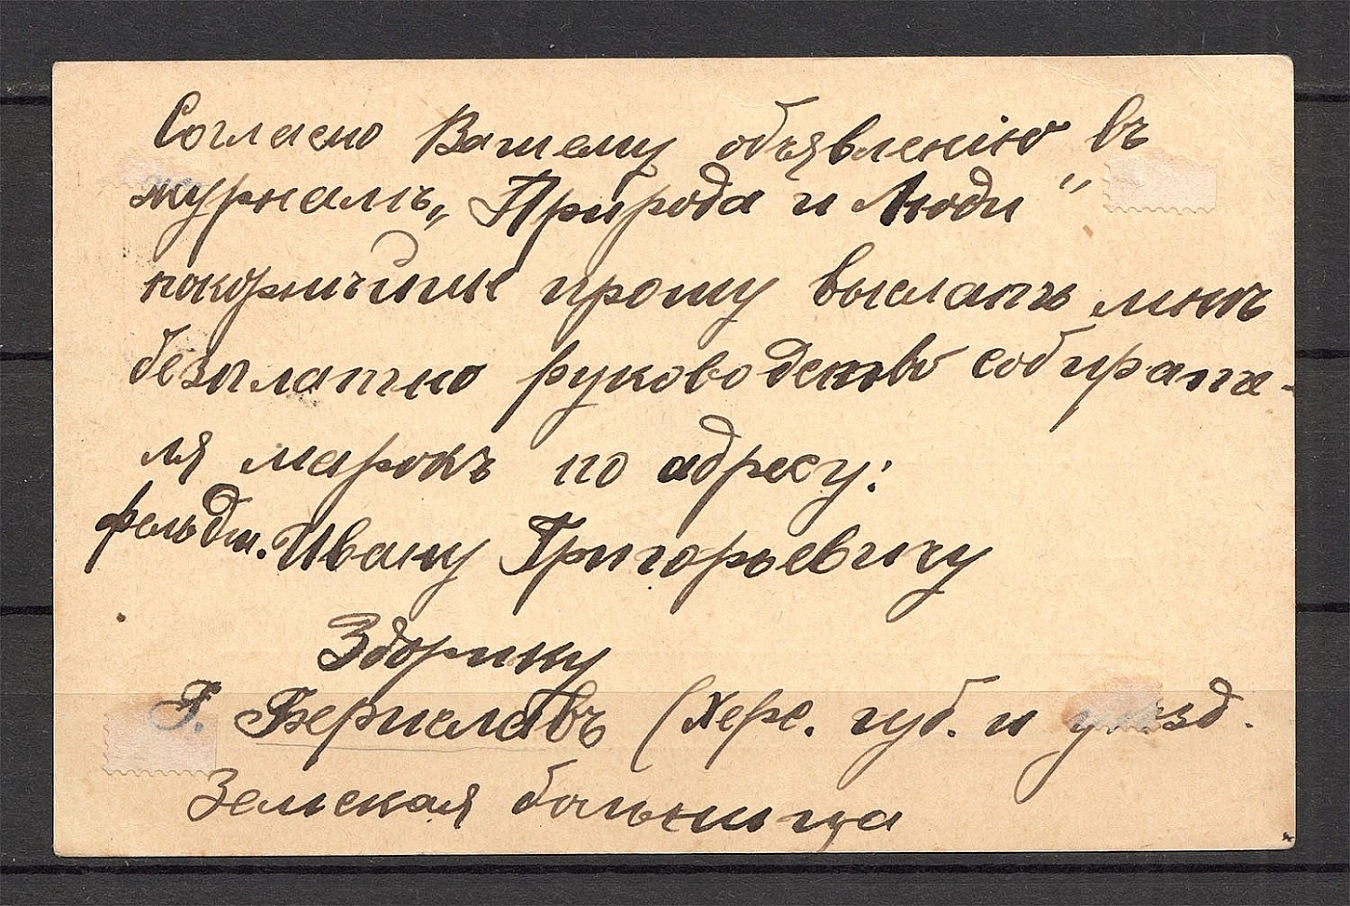 Согласно Вашему объявленію въ
журналѣ „Природа и Люди"
покорнѣйше прошу выслать мнѣ
безплатно руководство собирате-
ля марокъ по адресу:
фельдш. Ивану Григорьевичу
Здорику
Г. Бериславъ (Херс. губ. и уѣзд.
Земская больница